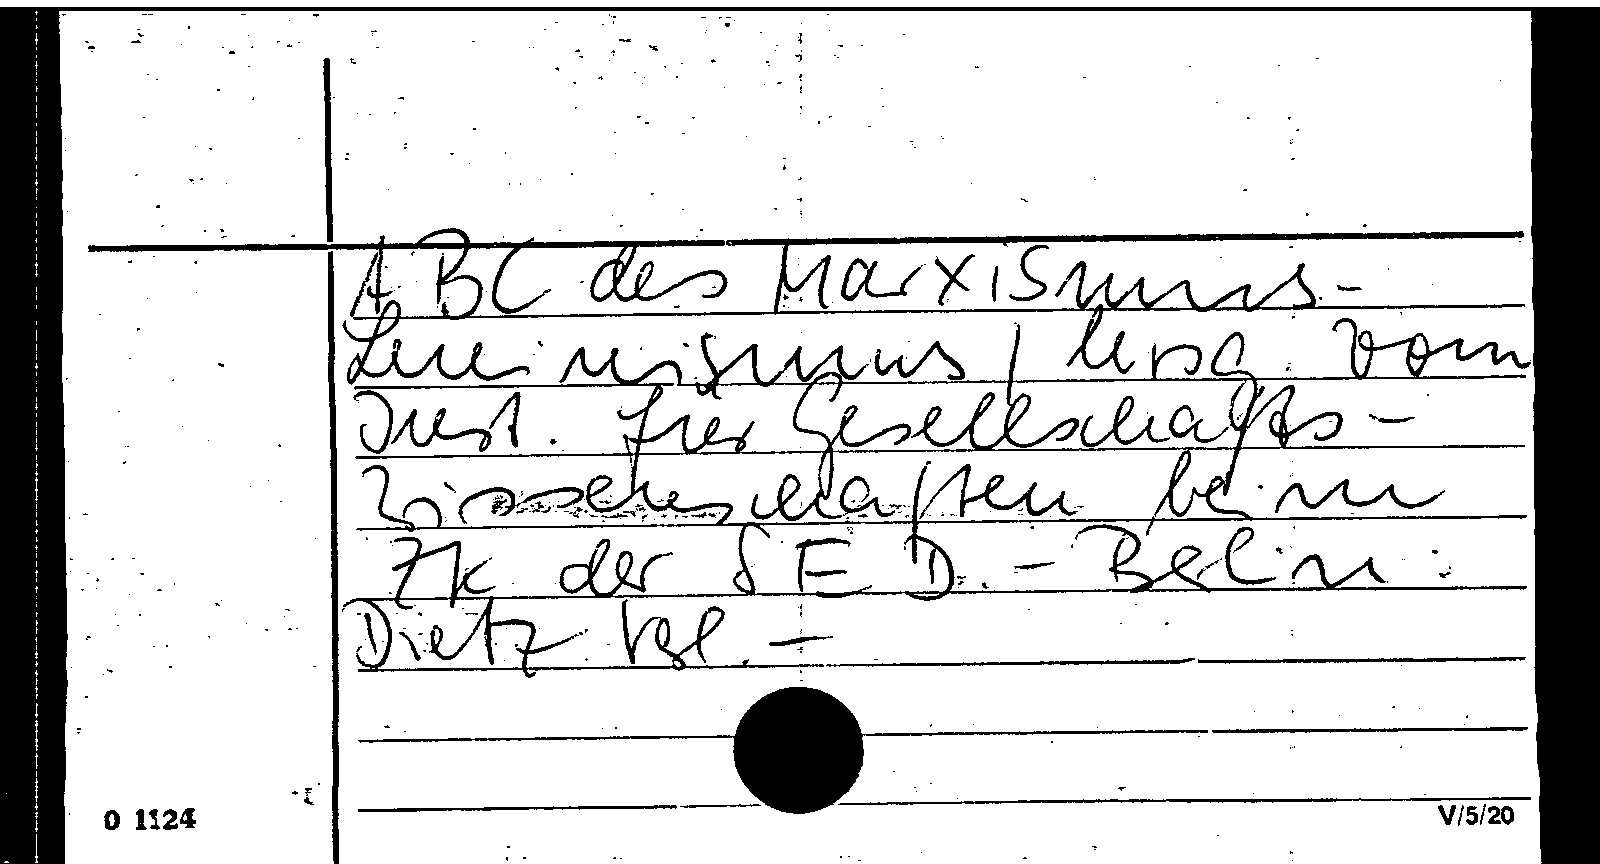 ABC des Marxismus-
Leninismus / hrsg. vom
Inst. für Gesellschafts-
wissenschaften beim
ZK der SED. - Berlin :
Dietz Vgl. -
0 1124
V/5/20